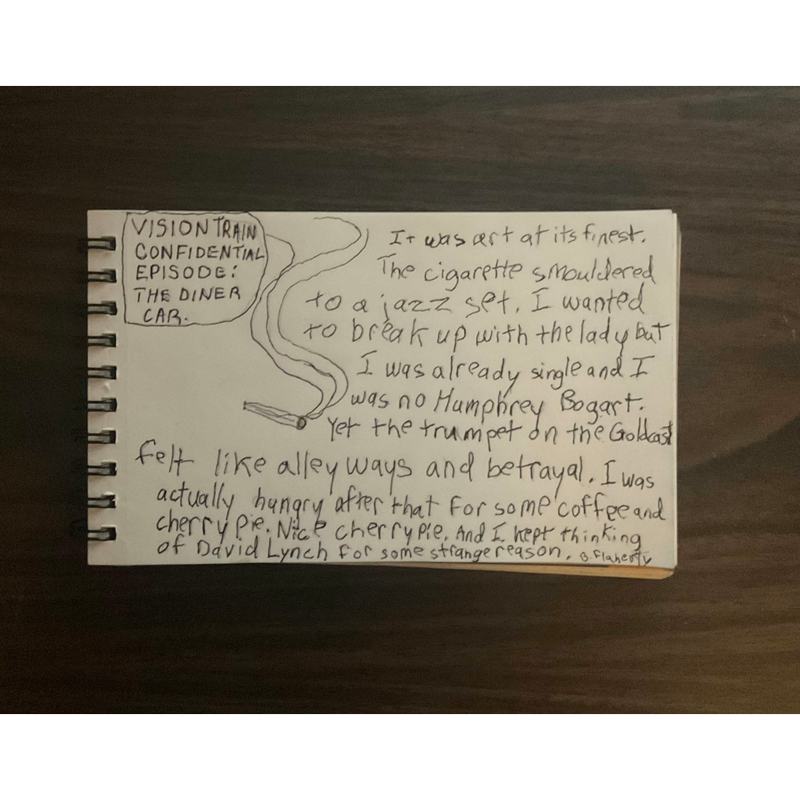 VISION TRAIN
CONFIDENTIAL
EPISODE:
THE DINER
CAR.
It was art at its finest.
The cigarette smouldered
to a jazz set. I wanted
to break up with the lady but
I was already single and I
was no Humphrey Bogart.
Yet the trumpet on the Goldcast
felt like alleyways and betrayal. I was
actually hungry after that for some coffee and
cherry pie. Nice cherry pie. And I kept thinking
of David Lynch for some strange reason. B. Flaherty